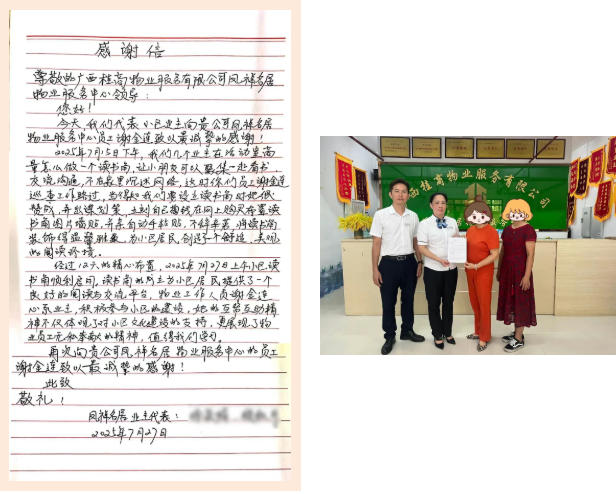 感谢信
尊敬的广西桂高物业服务有限公司凤祥名居
物业服务中心领导：
您好！
今天，我们代表小区业主向贵公司凤祥名居
物业服务中心员工谢金连致以最诚挚的感谢！
2025年7月15日下午，我们几个业主在活动室商
量怎么做一个读书角，让小朋友可以聚集一起看书，
交流沟通，不在家里沉迷网络，这时你们员工谢金连
巡查工作路过，当得知我们要设立读书角时她很
赞成，并出谋划策，立刻自己掏钱在网上购买布置读
书角图片墙贴，并亲自动手粘贴，不辞辛苦，将读书角
装饰得温馨雅致，为小区居民创造了个舒适，美观
的阅读环境。
经过12天的精心布置，2025年7月27日上午小区读
书角顺利启用，读书角的成立为小区居民提供了一个
良好的阅读与交流平台，物业工作人员谢金连
心系业主，积极参与小区的建设，她的互帮互助精
神不仅体现了对小区文化建设的支持，更展现了物
业员工无私奉献的精神，值得我们学习。
再次向贵公司凤祥名居物业服务中心的员工
谢金连致以最诚挚的感谢！
此致
敬礼！
凤祥名居业主代表：
2025年7月27日
西桂高物业服务有限公司